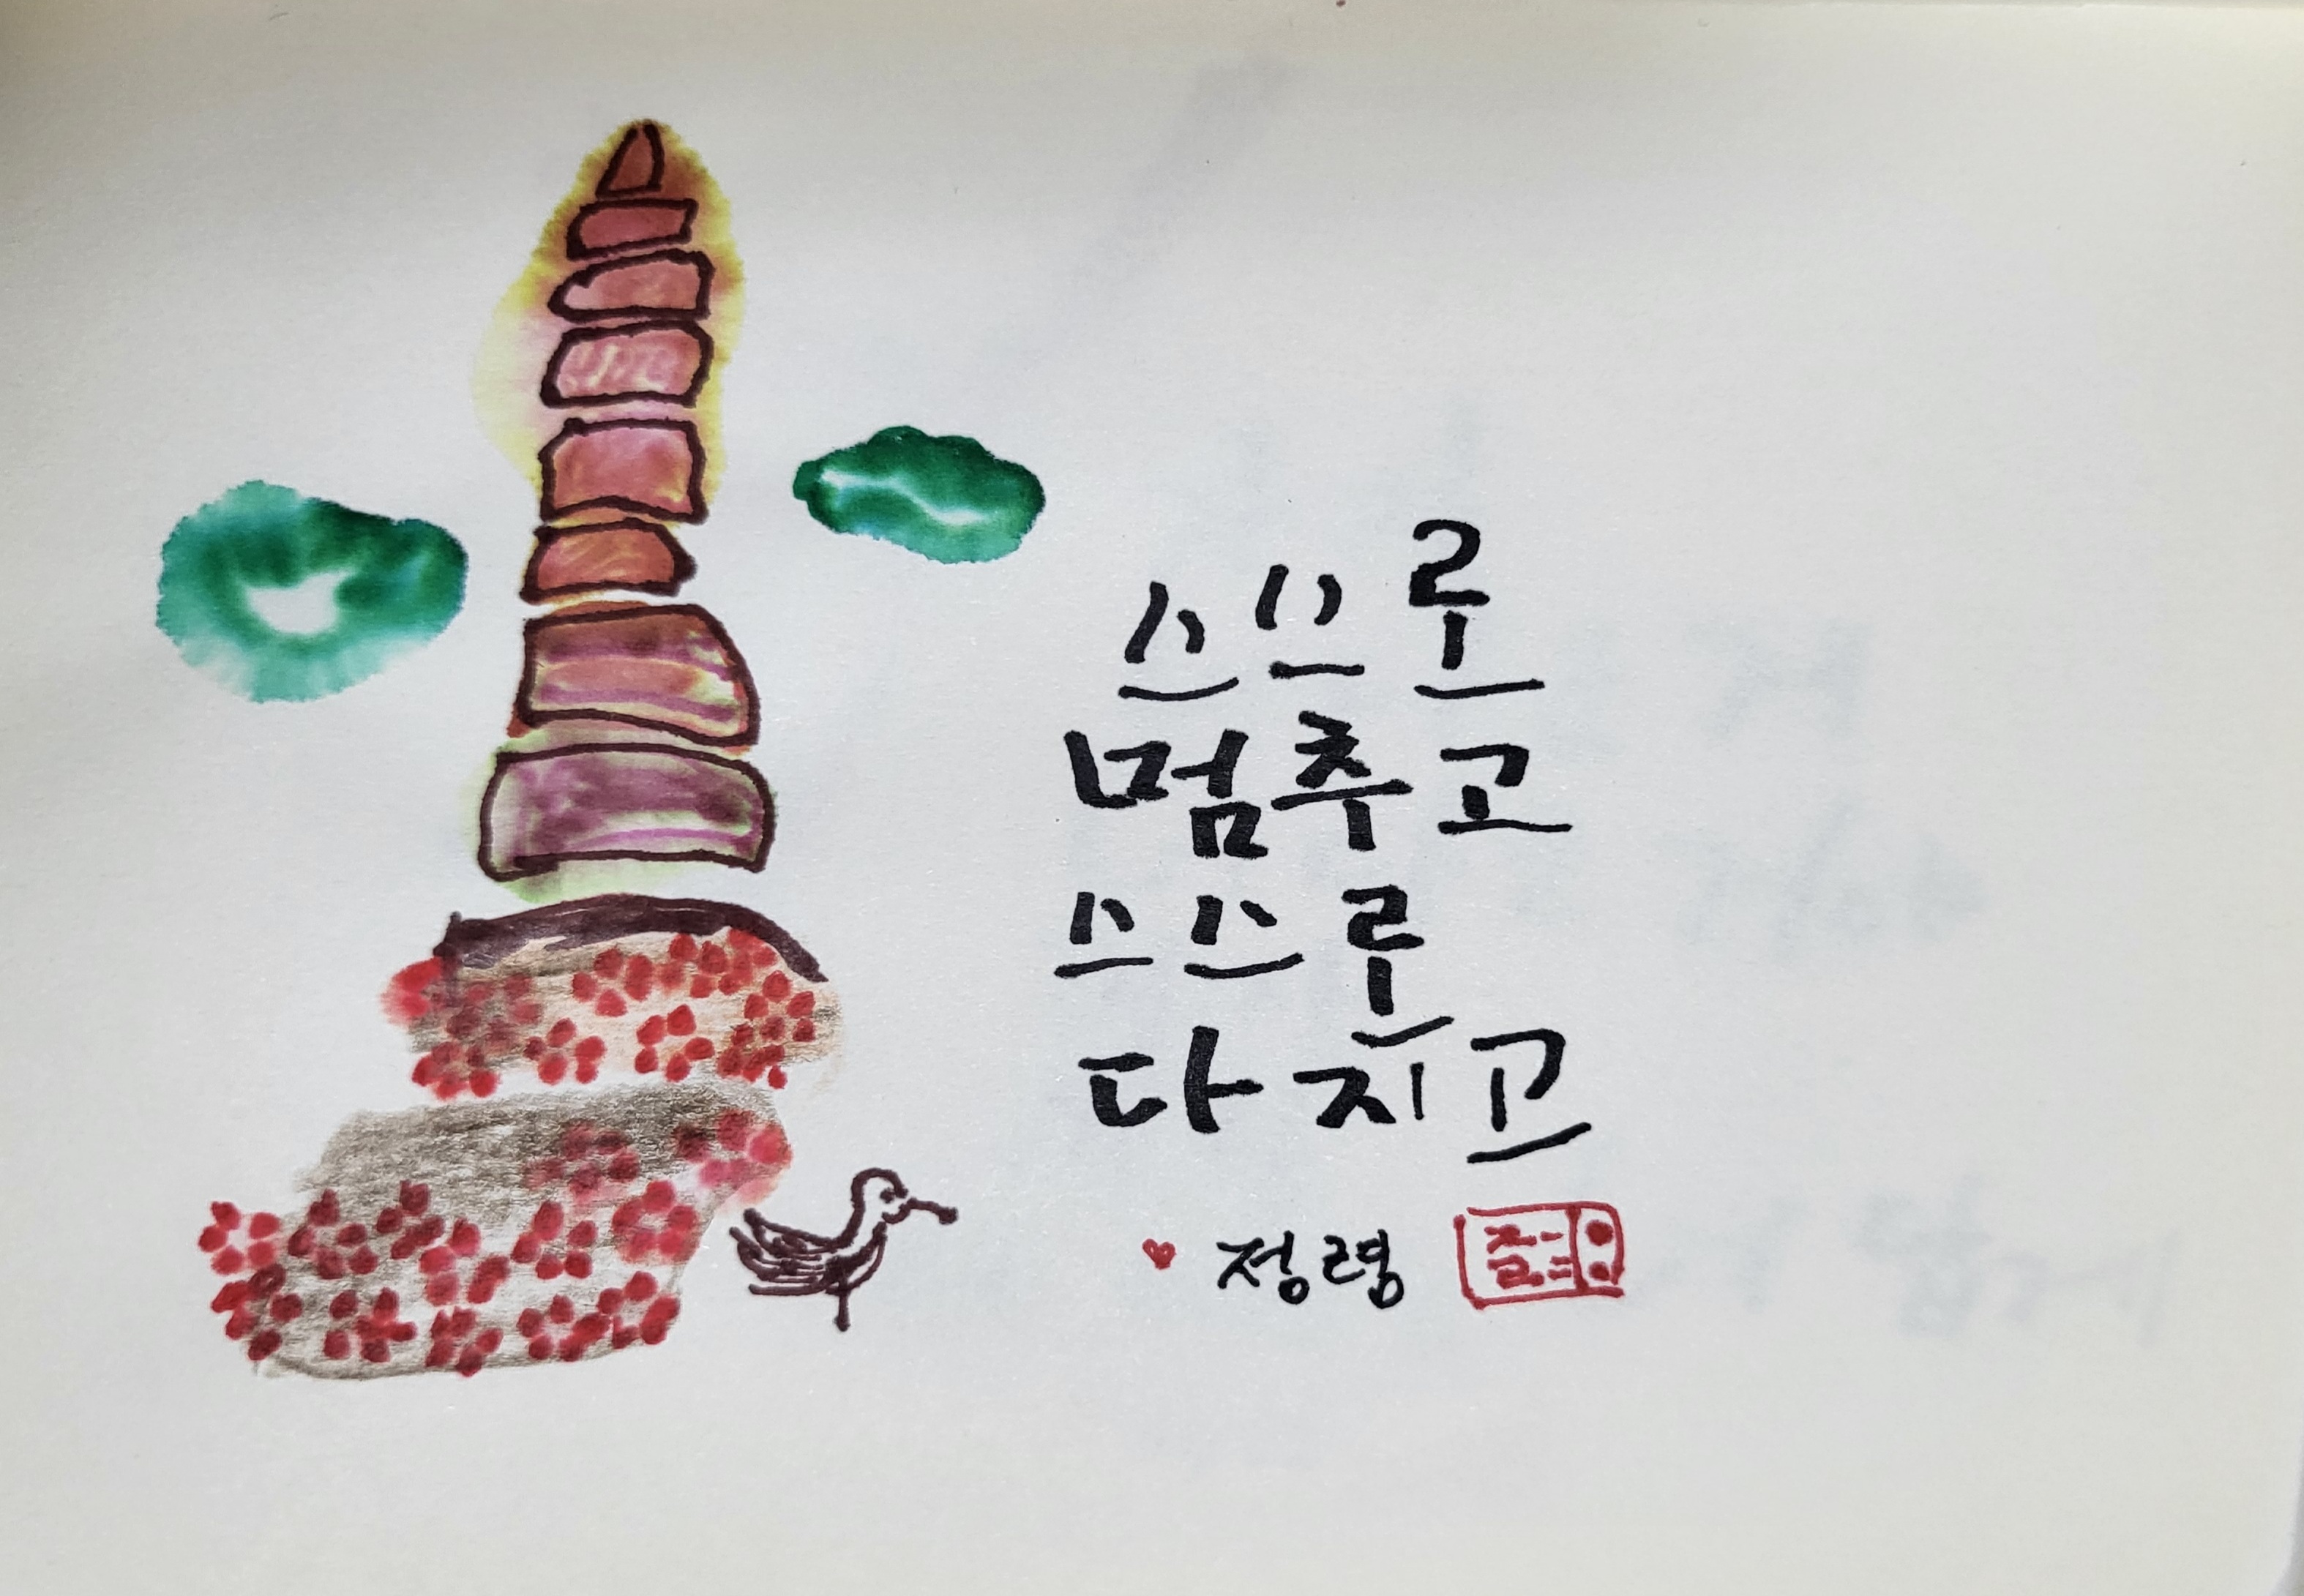 스스로
멈추고
스스로
다지고
정령